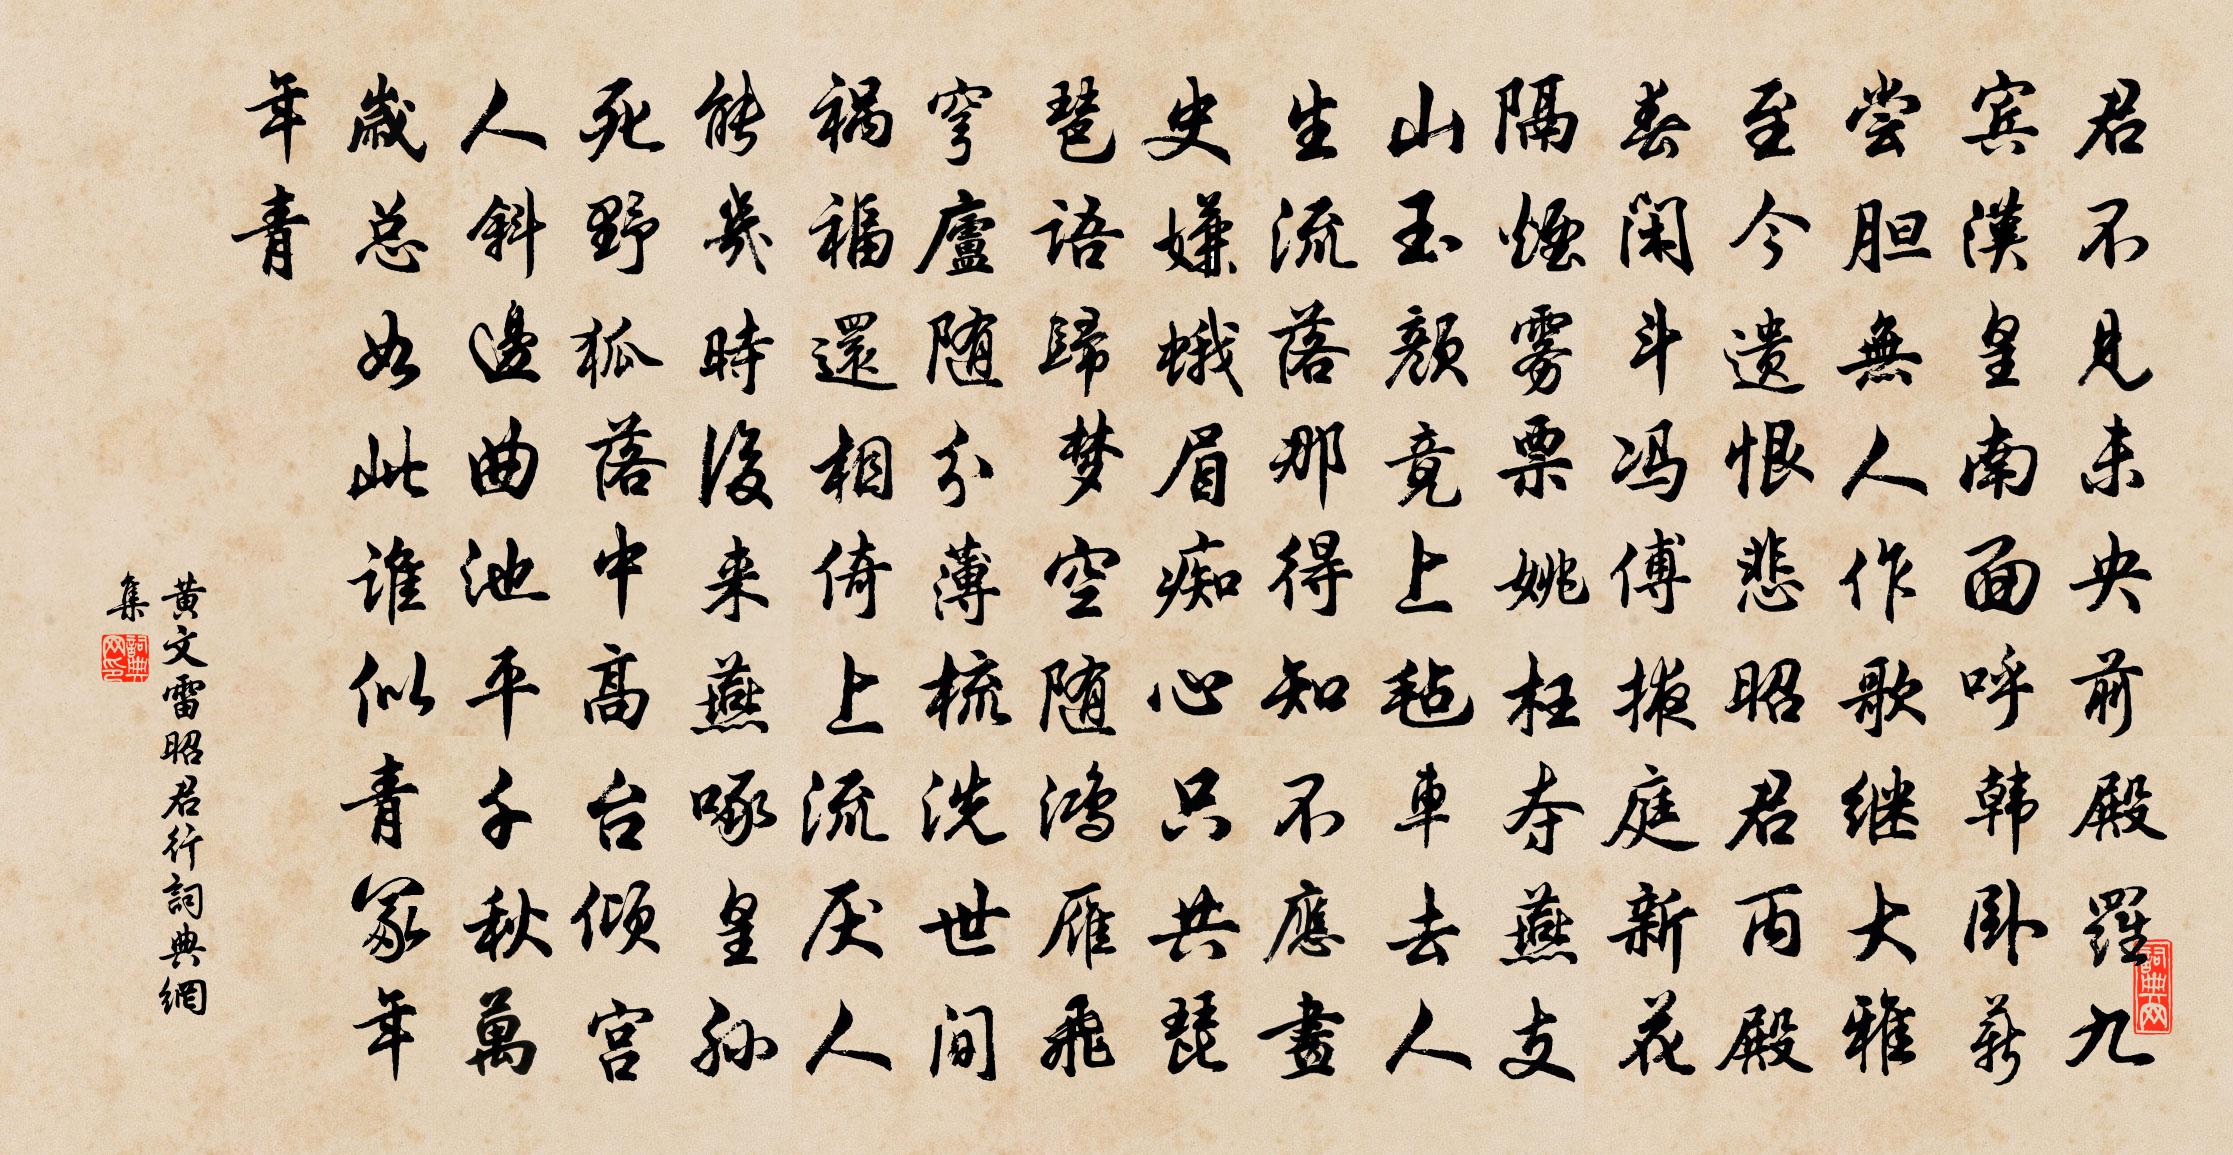 君不见未央前殿羅九
宾漢皇南面呼韩卧薪
尝胆無人作歌继大雅
至今遗恨悲昭君丙殿
春闲斗冯傅掖庭新花
隔煙雾票姚枉夺燕支
山玉颜竟上毡車去人
生流落那得知不應畫
史嫌蛾眉痴心只共琵
琶语歸梦空随鸿雁飛
穹廬随分薄梳洗世间
祸福還相倚上流厌人
能幾時後来燕啄皇孙
死野狐落中高台倾宫
人斜邊曲池平千秋萬
歲总如此谁似青冢年
年青
黄文雷昭君行詞典網
集
詞典网印
詞典网